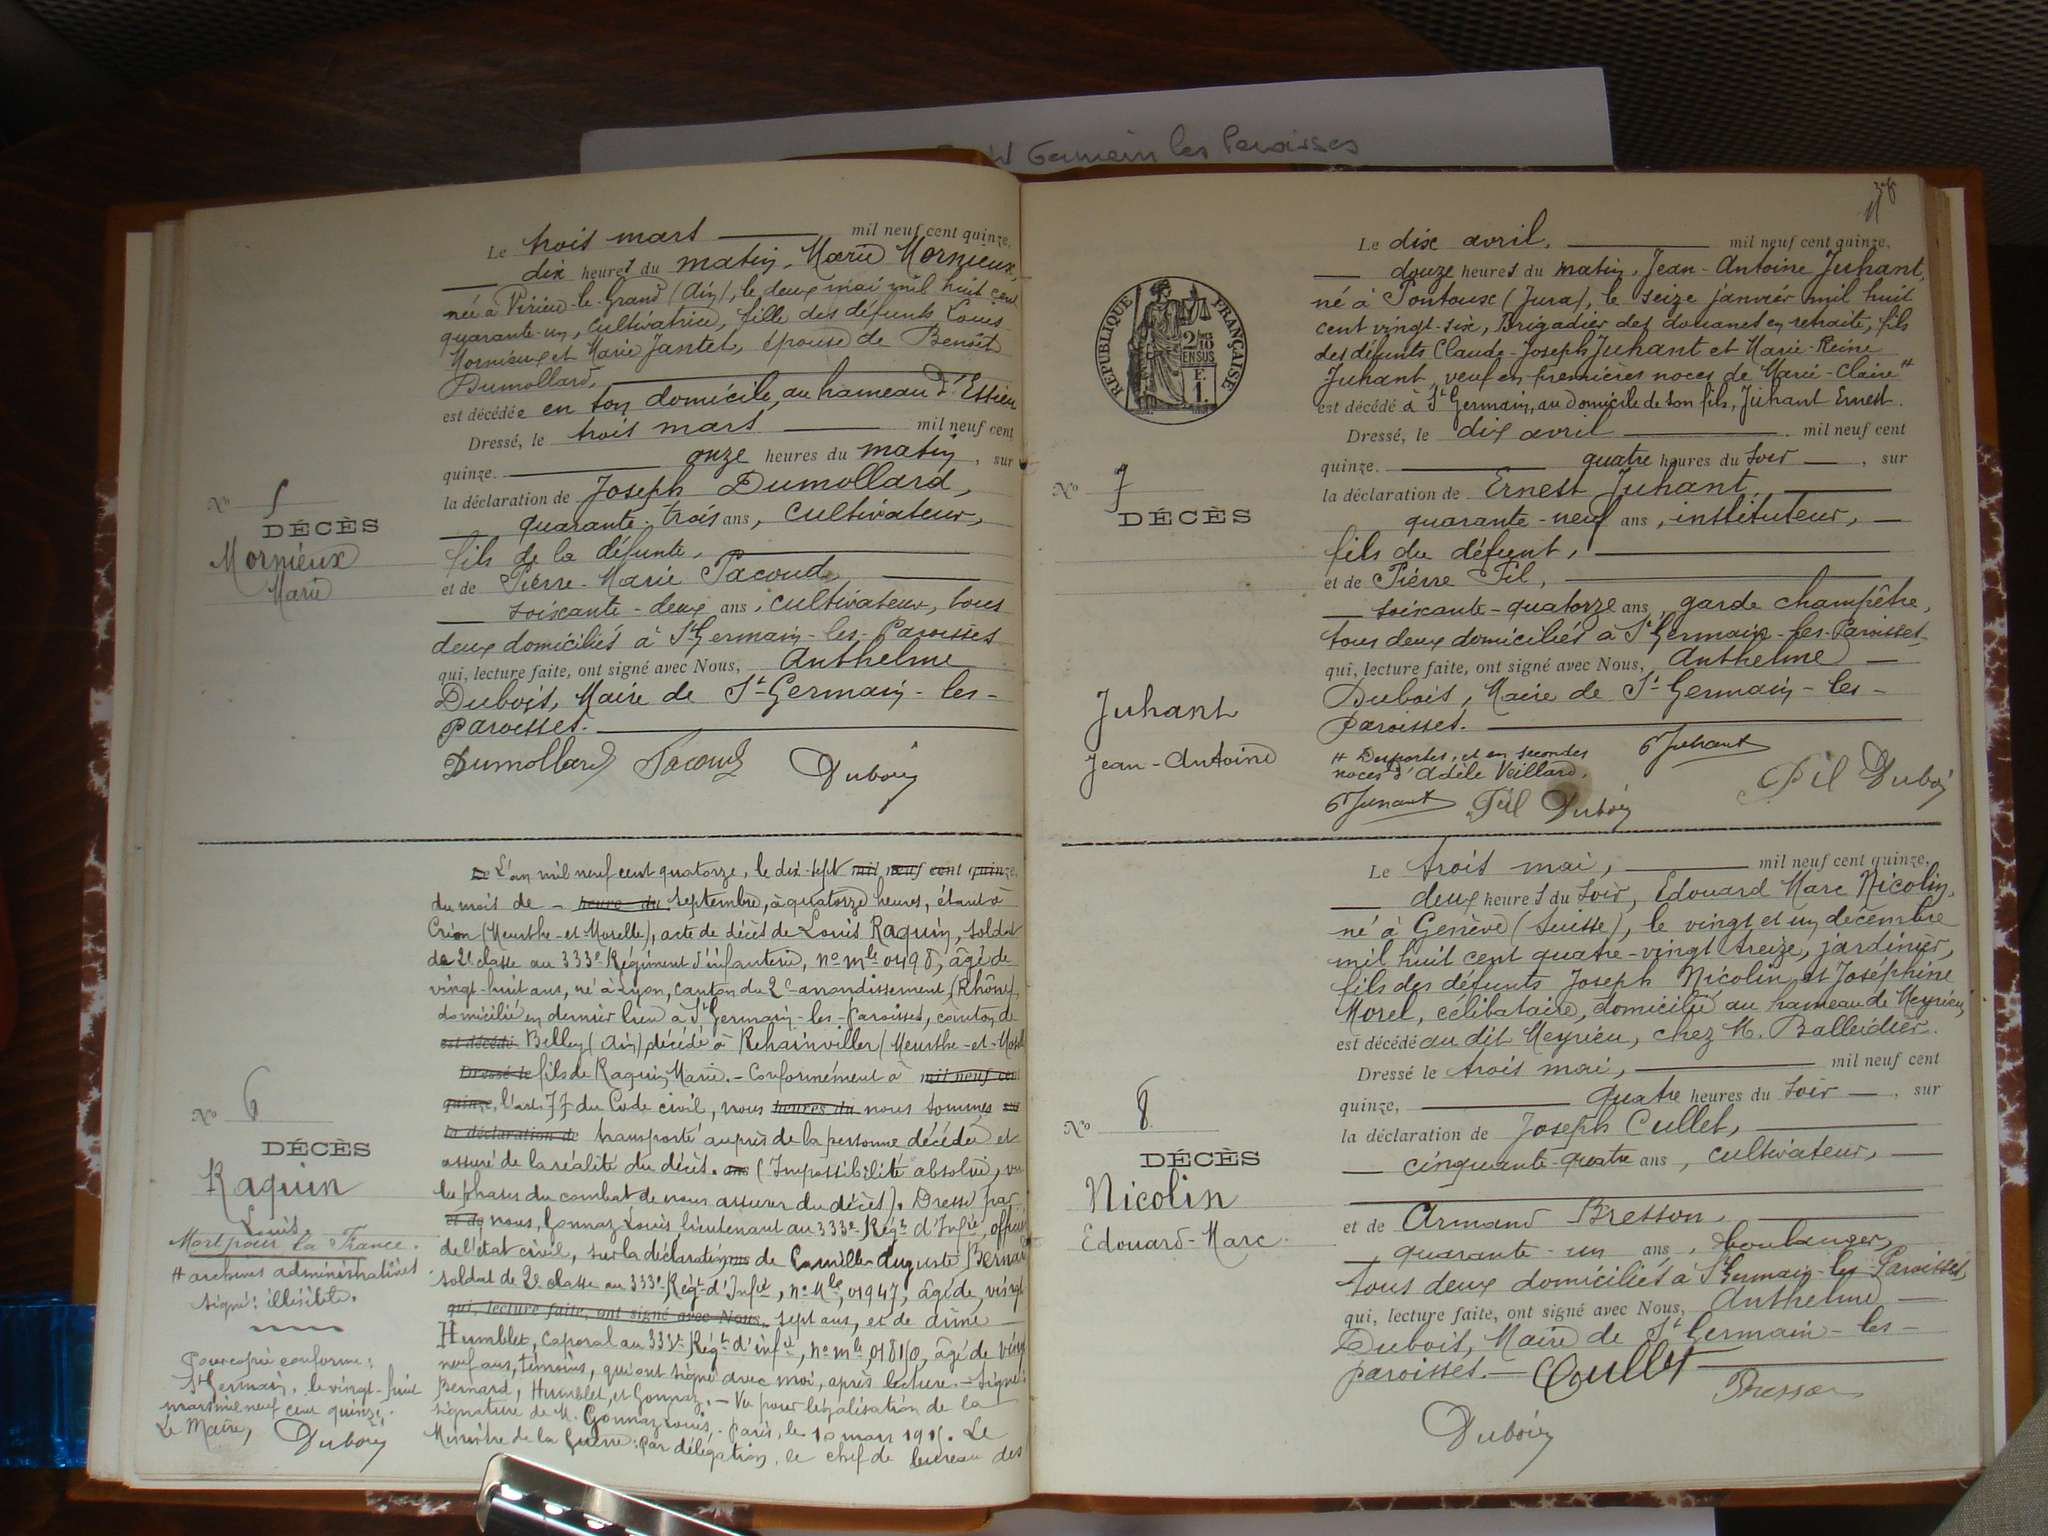 Germain les Paroisses
Le trois mars mil neuf cent quinze,
dix heures du matin, Marie Mornieux,
née à Virieu-le-Grand (Ain), le deux mai mil huit cent
quarante-un, cultivatrice, fille des défunts Louis
Mornieux et Marie Jantet, épouse de Benoît
Dumollard,
est décédée en son domicile, au hameau d'Essieu
Dressé, le trois mars mil neuf cent
quinze. onze heures du matin, sur
la déclaration de Joseph Dumollard,
quarante-trois ans, cultivateur,
fils de la défunte,
et de Pierre-Marie Pacoud,
soixante-deux ans, cultivateur, tous
deux domiciliés à St Germain-les-Paroisses
qui, lecture faite, ont signé avec Nous, Anthelme
Dubois, Maire de St-Germain-les-
Paroisses.
Dumollard Pacoud Dubois
No 5
DÉCÈS
Mornieux
Marie
Le L'an mil neuf cent quatorze, le dix-sept mil neuf cent quinze,
du mois de - heure du septembre, à quatorze heures, étant à
Crion (Meurthe-et-Moselle), acte de décès de Louis Raquin, soldat
de 2e classe au 333e Régiment d'infanterie, no mle 0498, âgé de
vingt-huit ans, né à Lyon, canton du 2e arrondissement (Rhône),
domicilié en dernier lieu à St Germain-les-Paroisses, canton de
est décédé Belley (Ain), décédé à Rehainviller (Meurthe-et-Moselle
Dressé le fils de Raquin Marie. - Conformément à mil neuf cent
quinze, l'art. 77 du Code civil, nous heures du nous sommes sur
la déclaration de transporté auprès de la personne décédée et
assuré de la réalité du décès. ans (Impossibilité absolue, vu
les phases du combat de nous assurer du décès). Dressé par
et de nous, Gonnaz Louis lieutenant au 333e Régt d'Infie, officier
de l'état civil, sur la déclaration ans de Camille Auguste Bernard
soldat de 2e classe au 333e Régt d'Infie, no Mle, 01947, âgé de, vingt
qui, lecture faite, ont signé avec Nous, sept ans, et de
Humblet, Caporal au 333e Régt d'infie, no mle 01810, âgé de vingt
neuf ans, témoins, qui ont signé avec moi, après lecture. - Signé:
Bernard, Humblet, et Gonnaz. - Vu pour légalisation de la
signature de M. Gonnaz Louis. Paris, le 10 mars 1915. Le
Ministre de la Guerre: par délégation, le chef de bureau des
No 6
DÉCÈS
Raquin
Louis
Mort pour la France.
# archives administratives
signé: illisible.
Pour copie conforme:
St Germain, le vingt-huit
mars mil neuf cent quinze.
Le Maire, Dubois
Le dix avril, mil neuf cent quinze,
douze heures du matin, Jean-Antoine Juhant,
né à Pontoux (Jura), le seize janvier mil huit
cent vingt-six, Brigadier des douanes en retraite, fils
des défunts Claude-Joseph Juhant et Marie-Reine
Juhant, veuf en premières noces de Marie-Claire #
est décédé à St Germain, au domicile de son fils, Juhant Ernest.
Dressé, le dix avril mil neuf cent
quinze. quatre heures du soir, sur
la déclaration de Ernest Juhant,
quarante-neuf ans, instituteur,
fils du défunt,
et de Pierre Pil,
soixante-quatorze ans, garde champêtre,
tous deux domiciliés à St Germain-les-Paroisses
qui, lecture faite, ont signé avec Nous, Anthelme
Dubois, Maire de St-Germain-les-
Paroisses.
# Desportes, et en secondes
noces d'Adèle Veillard.
E Juhant
Pil Dubois
E Juhant Pil Dubois
RÉPUBLIQUE FRANÇAISE
2/10
EN SUS
F.
1.
No 7
DÉCÈS
Juhant
Jean-Antoine
Le trois mai, mil neuf cent quinze,
deux heures du soir, Edouard Marc Nicolin,
né à Genève (Suisse), le vingt et un décembre
mil huit cent quatre-vingt treize, jardinier,
fils des défunts Joseph Nicolin et Joséphine
Morel, célibataire, domicilié au hameau de Meyrieu,
est décédé au dit Meyrieu, chez M. Balleidier.
Dressé le trois mai, mil neuf cent
quinze, quatre heures du soir, sur
la déclaration de Joseph Cullet,
cinquante-quatre ans, cultivateur,
et de Armand Bresson,
quarante-un ans, boulanger,
tous deux domiciliés à St Germain-les-Paroisses,
qui, lecture faite, ont signé avec Nous, Anthelme
Dubois, Maire de St Germain-les-
Paroisses. Cullet
Bresson
Dubois
No 8
DÉCÈS
Nicolin
Edouard-Marc